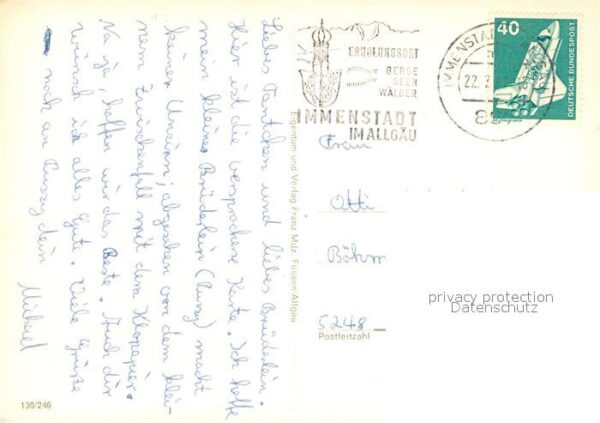 Liebes Tantchen und liebes Brüderlein.
Hier ist die versprochene Karte. Ich hoffe
mein kleines Brüderlein (Pussy) macht
keinen Unsinn; abgesehen von dem klei-
nen Zwischenfall mit dem Klopapier.
Na ja, hoffen wir das Beste. Auch dir
wünsch ich alles Gute. Viele Grüße
noch an Pussy dein
Michael
130/246
Eigentum und Verlag Franz Milz Füssen/Allgäu
ERHOLUNGSORT
BERGE
SEEN
WÄLDER
IMMENSTADT
IM ALLGÄU
IMMENSTADT
22.
40
DEUTSCHE BUNDESPOST
Frau
Otti
Böhm
5248
Postleitzahl
privacy protection
Datenschutz